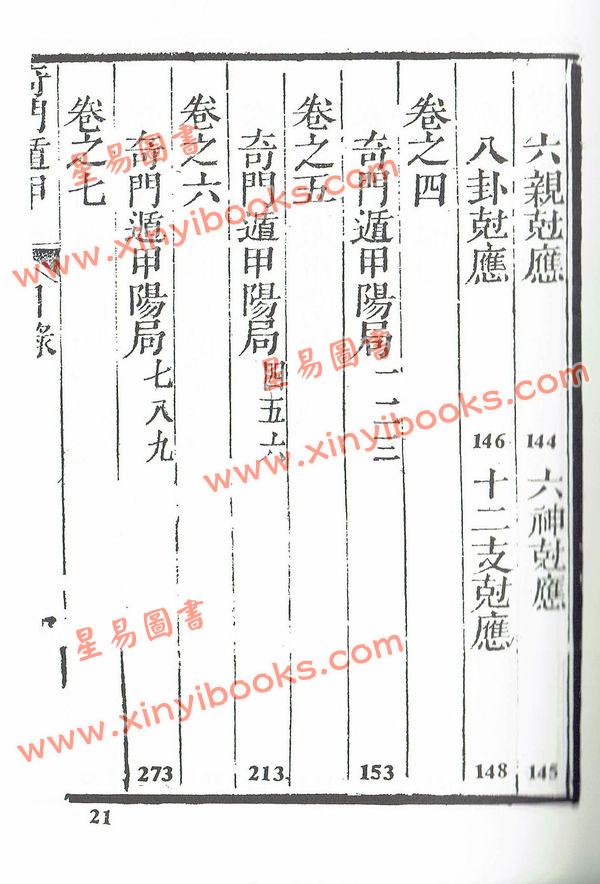 六親尅應 144 六神尅應 145
八卦尅應 146 十二支尅應 148
卷之四
奇門遁甲陽局一二三 153
卷之五
奇門遁甲陽局四五六 213
卷之六
奇門遁甲陽局七八九 273
卷之七
奇門遁甲 目錄
21
星易圖書
www.xinyibooks.com
星易圖書
www.xinyibooks.com
星易圖書
www.xinyibooks.com